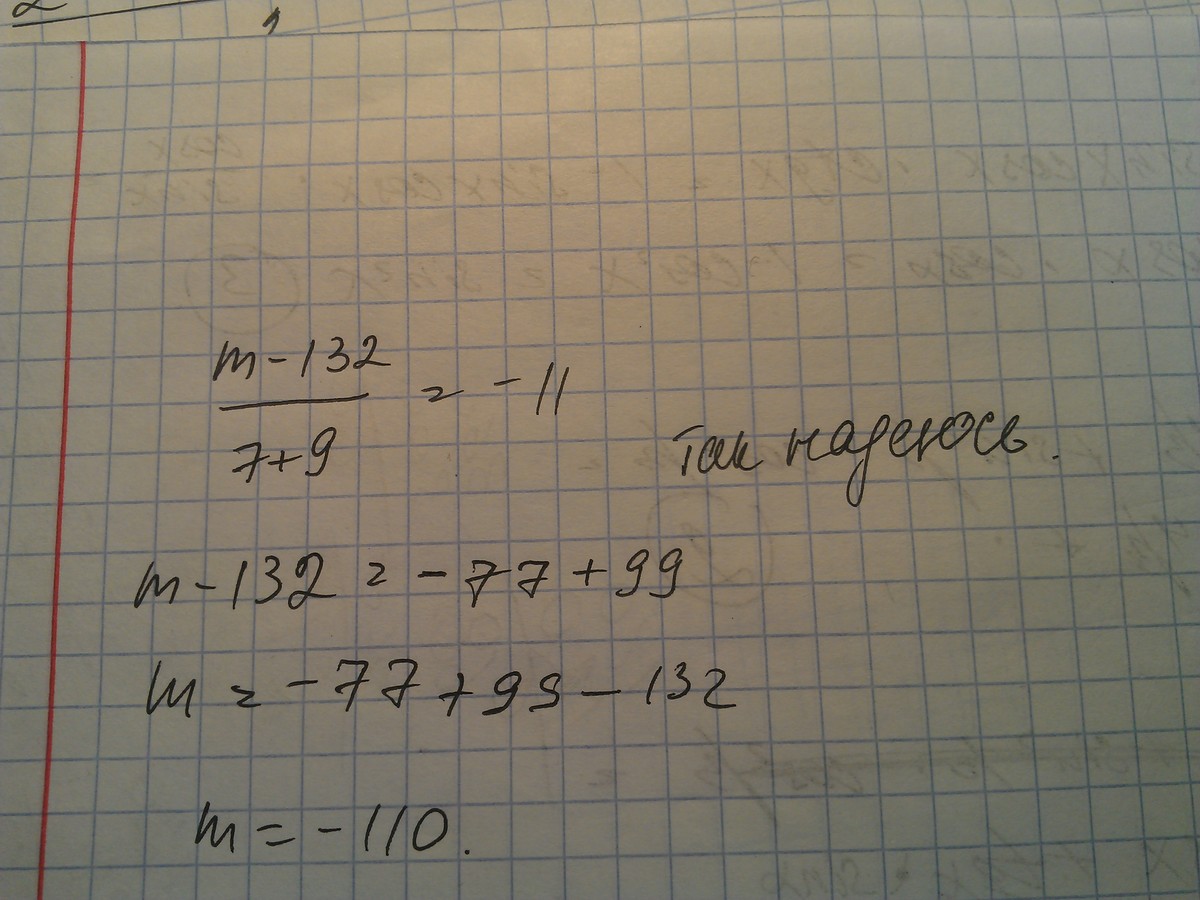 m-132
7+9
= -11
Так надеюсь.
m-132 = -77+99
m = -77+99-132
m = -110.